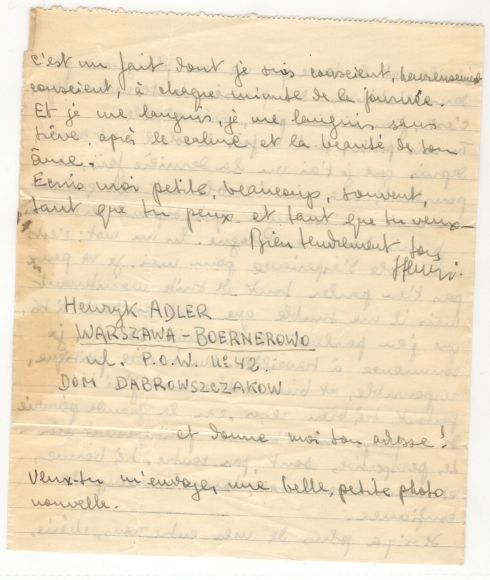 c'est un fait dont je suis conscient, heureusement
conscient, à chaque minute de la journée.
Et je me languis, je me languis sans
trêve, après le calme et la beauté de ton
âme.
Ecris moi petite, beaucoup, souvent,
tant que tu peux et tant que tu veux –
Bien tendrement ton
Henri.
Henryk ADLER
WARSZAWA – BOERNEROWO
ul. P.O.W. No 42.
DOM DABROWSZCZAKOW
et donne moi ton adresse !
Veux-tu m'envoyer une belle, petite photo
nouvelle.